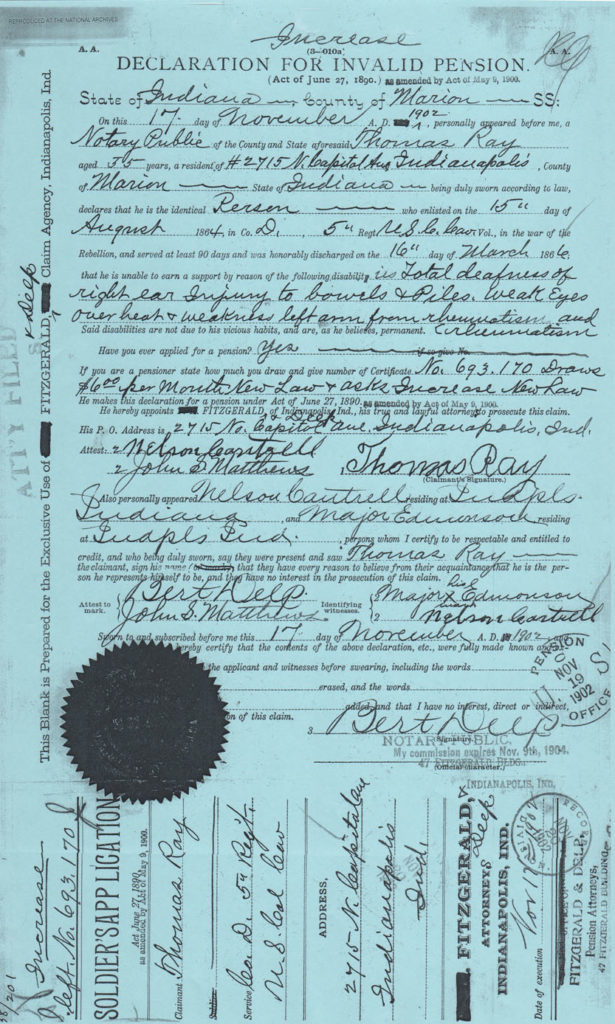 REPRODUCED AT THE NATIONAL ARCHIVES
Increase
A. A. (3—010a) A. A.
DECLARATION FOR INVALID PENSION.
(Act of June 27, 1890.) as amended by Act of May 9, 1900.
State of Indiana County of Marion SS:
On this 17 day of November A. D. 1902, personally appeared before me, a
Notary Public of the County and State aforesaid Thomas Ray
aged 55 years, a resident of #2715 N. Capitol Ave Indianapolis, County
of Marion State of Indiana being duly sworn according to law,
declares that he is the identical Person who enlisted on the 15" day of
August 1864 in Co. D. 5" Regt. U.S.C. Cav Vol., in the war of the
Rebellion, and served at least 90 days and was honorably discharged on the 16" day of March 1866,
that he is unable to earn a support by reason of the following disability: is Total deafness of
right ear Injury to bowels & Piles. Weak Eyes
over heat & weakness left arm from rheumatism and
Said disabilities are not due to his vicious habits, and are, as he believes, permanent. (rheumatism
Have you ever applied for a pension? Yes if so give No.
If you are a pensioner state how much you draw and give number of Certificate. No. 693.170 Draws
$6.00 per Month New Law & asks Increase New Law
He makes this declaration for a pension under Act of June 27, 1890. as amended by Act of May 9, 1900.
He hereby appoints FITZGERALD, & Deep of Indianapolis Ind., his true and lawful attorney to prosecute this claim.
His P. O. Address is 2715 No. Capitol Ave, Indianapolis, Ind.
Attest: 1 Nelson Cantrell
2 John S. Matthews , Thomas Ray
(Claimant's Signature.)
Also personally appeared Nelson Cantrell residing at Indpls.
Indiana, and Major Edmonson residing
at Indpls Ind., persons whom I certify to be respectable and entitled to
credit, and who being duly sworn, say they were present and saw Thomas Ray
the claimant, sign his name (or ) that they have every reason to believe from their acquaintance that he is the per-
son he represents himself to be, and they have no interest in the prosecution of this claim.
Attest to mark. { Bert Deep
John S. Matthews } Identifying witnesses. { Major his x mark Edmonson
2 Nelson Cantrell
Sworn to and subscribed before me this 17 day of November A. D. 1902 and
hereby certify that the contents of the above declaration, etc., were fully made known and
the applicant and witnesses before swearing, including the words
erased, and the words
added and that I have no interest, direct or indirect,
on of this claim.
3 Bert Deep
(Signature.)
NOTARY PUBLIC.
My commission expires Nov. 9th, 1904.
47 FITZGERALD BLDG.
(Official character.)
INDIANAPOLIS, IND.
PENSION OFFICE
U. S.
NOV 19 1902
ATTY FILED
This Blank is Prepared for the Exclusive Use of FITZGERALD, & Deep Claim Agency, Indianapolis, Ind.
Increase
Cert. No. 693.170
SOLDIER'S APPLICATION
Act June 27, 1890,
as amended by Act of May 9, 1900.
Claimant Thomas Ray
Service Co. D. 5" Regt.
U S Col Cav
ADDRESS,
2715 N. Capitol Ave
Indianapolis
Ind.
FITZGERALD, & Deep
ATTORNEYS
INDIANAPOLIS, IND.
Nov 17
Date of execution
FITZGERALD & DEEP,
Pension Attorneys,
47 FITZGERALD BUILDING